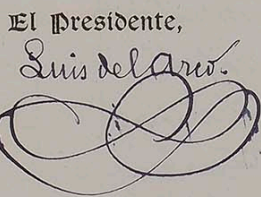 El Presidente,
Luis del Arco.